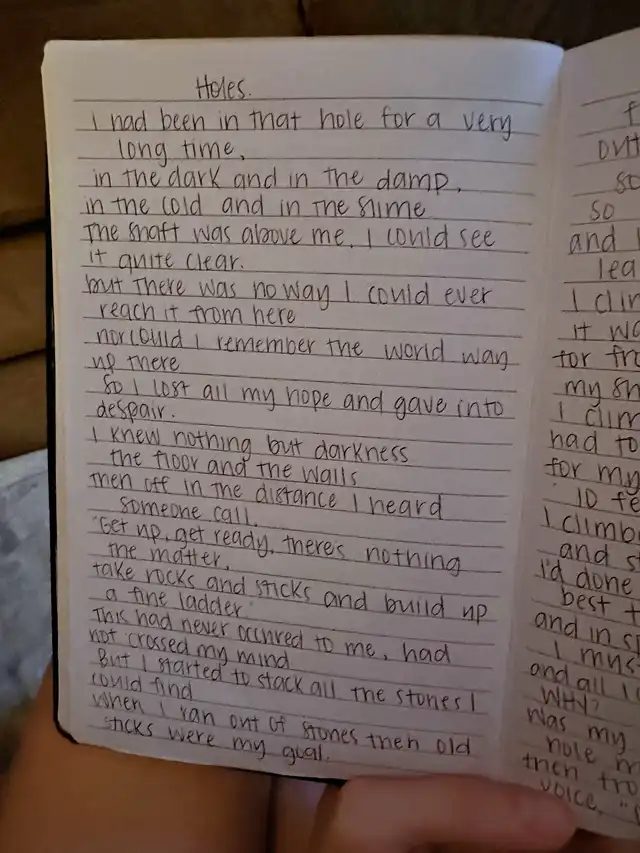 Holes.
I had been in that hole for a very
long time,
in the dark and in the damp,
in the cold and in the slime
The shaft was above me, I could see
it quite clear.
but there was no way I could ever
reach it from here
nor could I remember the world way
up there
So I lost all my hope and gave into
despair.
I knew nothing but darkness
the floor and the walls
Then off in the distance I heard
someone call.
"Get up, get ready, there's nothing
the matter,
take rocks and sticks and build up
a fine ladder"
This had never occured to me, had
not crossed my mind
But I started to stack all the stones I
could find
When I ran out of stones then old
sticks were my goal.
so
so
and
I
it
for
my
I
had to
for my
10
I
and
I'd done
best
and in
I
and all
WHY?
was my
hole
then
voice,